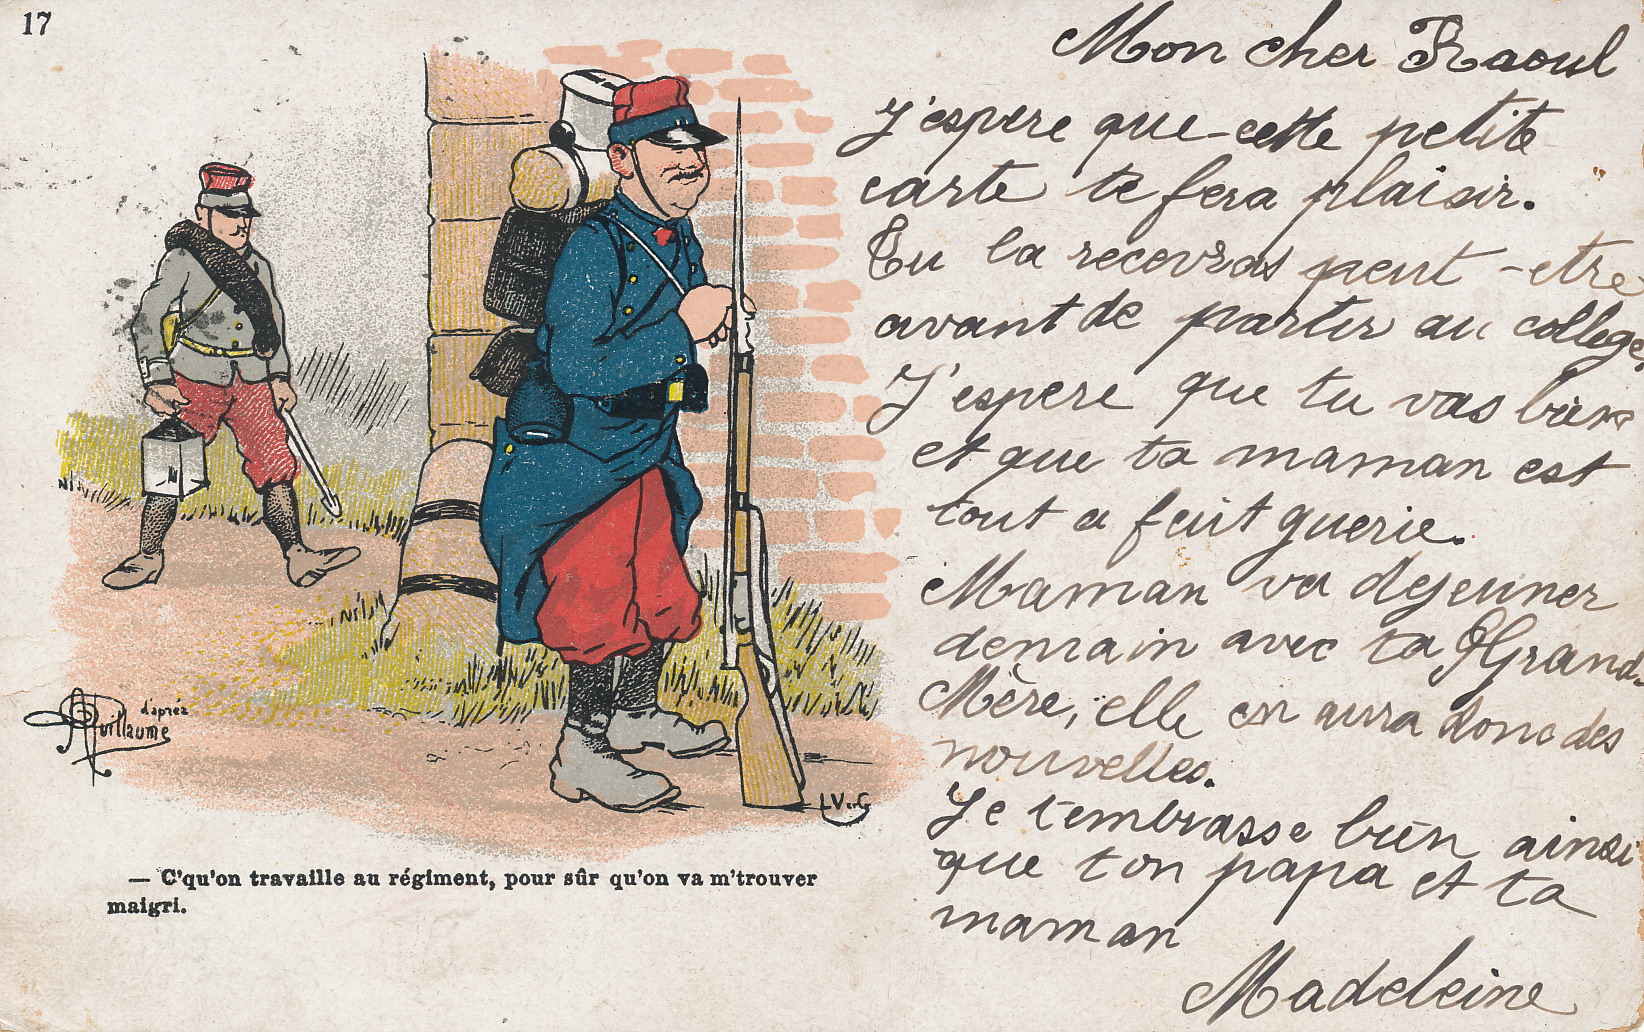 17
Mon cher Raoul
J'espere que cette petite
carte te fera plaisir.
Tu la recevras peut-etre
avant de partir au college.
J'espere que tu vas bien
et que ta maman est
tout a fait guerie.
Maman va dejeuner
demain avec ta Grand-
Mère, elle en aura donc des
nouvelles.
Je t'embrasse bien ainsi
que ton papa et ta
maman
Madeleine
d'après
Guillaume
LV & G
— C'qu'on travaille au régiment, pour sûr qu'on va m'trouver
maigri.